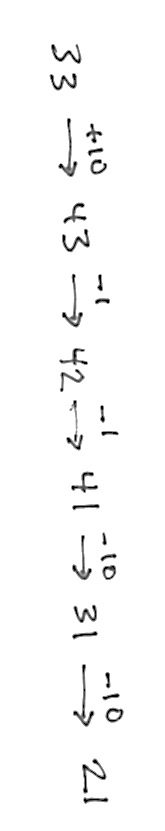 33 →+10 43 →-1 42 →-1 41 →-10 31 →-10 21